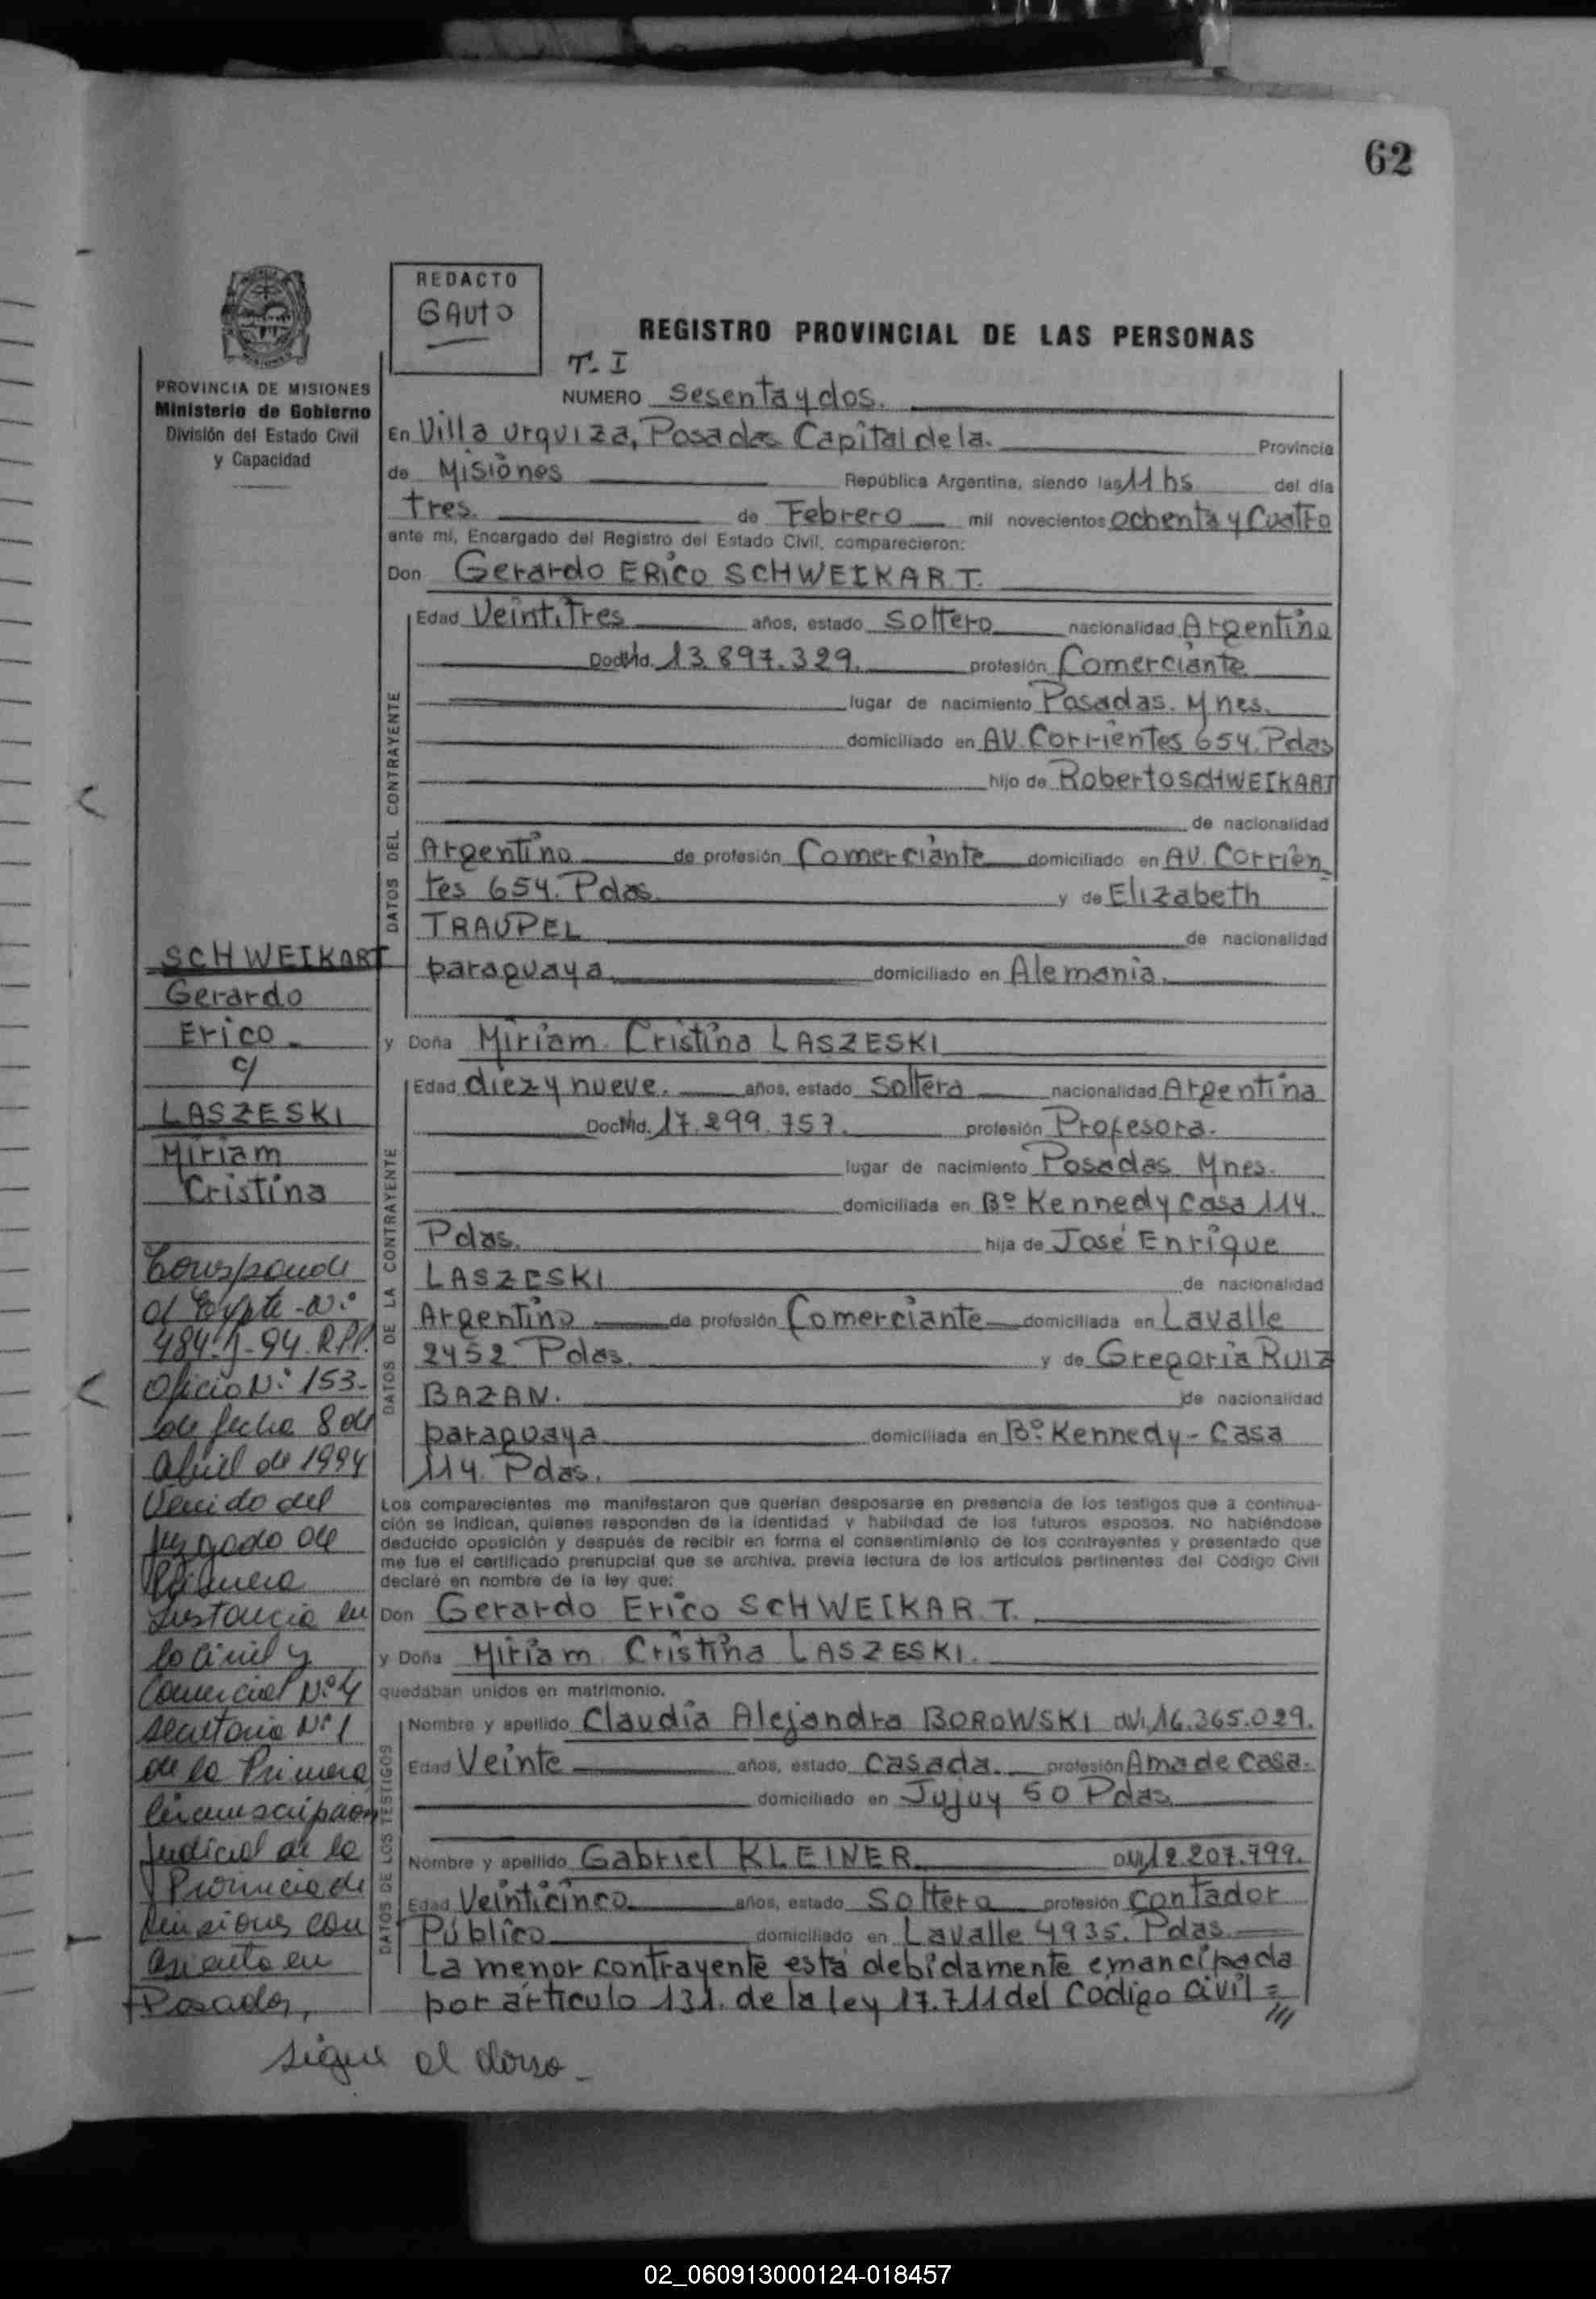 62
REDACTO
GAUTO
REGISTRO PROVINCIAL DE LAS PERSONAS
T. I
PROVINCIA DE MISIONES
Ministerio de Gobierno
División del Estado Civil
y Capacidad
NUMERO Sesenta y dos.
En Villa Urquiza, Posadas Capital de la. Provincia
de Misiones República Argentina, siendo las 11 hs del día
tres. de Febrero mil novecientos ochenta y Cuatro
ante mí, Encargado del Registro del Estado Civil, comparecieron:
Don Gerardo ERICO SCHWEIKART.
DATOS DEL CONTRAYENTE
Edad VeintiTres años, estado Soltero nacionalidad Argentino
13.897.329. profesión Comerciante
lugar de nacimiento Posadas. Mnes.
domiciliado en AV. Corrientes 654. Pdas
hijo de Roberto SCHWEIKART
de nacionalidad
Argentino de profesión Comerciante domiciliado en AV. Corrien
tes 654. Pdas. y de Elizabeth
TRAUPEL de nacionalidad
paraguaya domiciliado en Alemania.
y Doña Miriam Cristina LASZESKI
DATOS DE LA CONTRAYENTE
Edad diez y nueve. años, estado Soltera nacionalidad Argentina
17.299.757. profesión Profesora.
lugar de nacimiento Posadas Mnes.
domiciliada en Bº Kennedy Casa 114.
Pdas. hija de José Enrique
LASZESKI de nacionalidad
Argentino de profesión Comerciante domiciliada en Lavalle
2452 Pdas. y de Gregoria RUIZ
BAZAN. de nacionalidad
paraguaya domiciliada en Bº. Kennedy - Casa
114. Pdas.
Los comparecientes me manifestaron que querían desposarse en presencia de los testigos que a continua-
ción se indican, quienes responden de la identidad y habilidad de los futuros esposos. No habiéndose
deducido oposición y después de recibir en forma el consentimiento de los contrayentes y presentado que
me fue el certificado prenupcial que se archiva, previa lectura de los artículos pertinentes del Código Civil
declaré en nombre de la ley que:
Don Gerardo Erico SCHWEIKART.
y Doña Miriam Cristina LASZESKI.
quedaban unidos en matrimonio.
DATOS DE LOS TESTIGOS
Nombre y apellido Claudia Alejandra BOROWSKI 16.365.029.
Edad Veinte años, estado Casada. profesión Ama de Casa.
domiciliado en Jujuy 50 Pdas
Nombre y apellido Gabriel KLEINER 12.207.799.
Edad Veinticinco años, estado Soltero profesión Contador
Público domiciliado en Lavalle 4935. Pdas.
La menor contrayente está debidamente emancipada
por artículo 131. de la ley 17.711 del Código Civil =
SCHWEIKART
Gerardo
Erico
c/
LASZESKI
Miriam
Cristina
Corresponde
al Expte - Nº
484- -94. R.P.P.
Oficio Nº 153-
de fecha 8 de
Abril de 1994
Venido del
Juzgado de
Primera
Instancia en
lo Civil y
Comercial Nº 4
Secretaria Nº 1
de la Primera
Circunscripción
Judicial de la
Provincia de
Misiones con
asiento en
Posadas,
sigue al dorso -
02_060913000124-018457